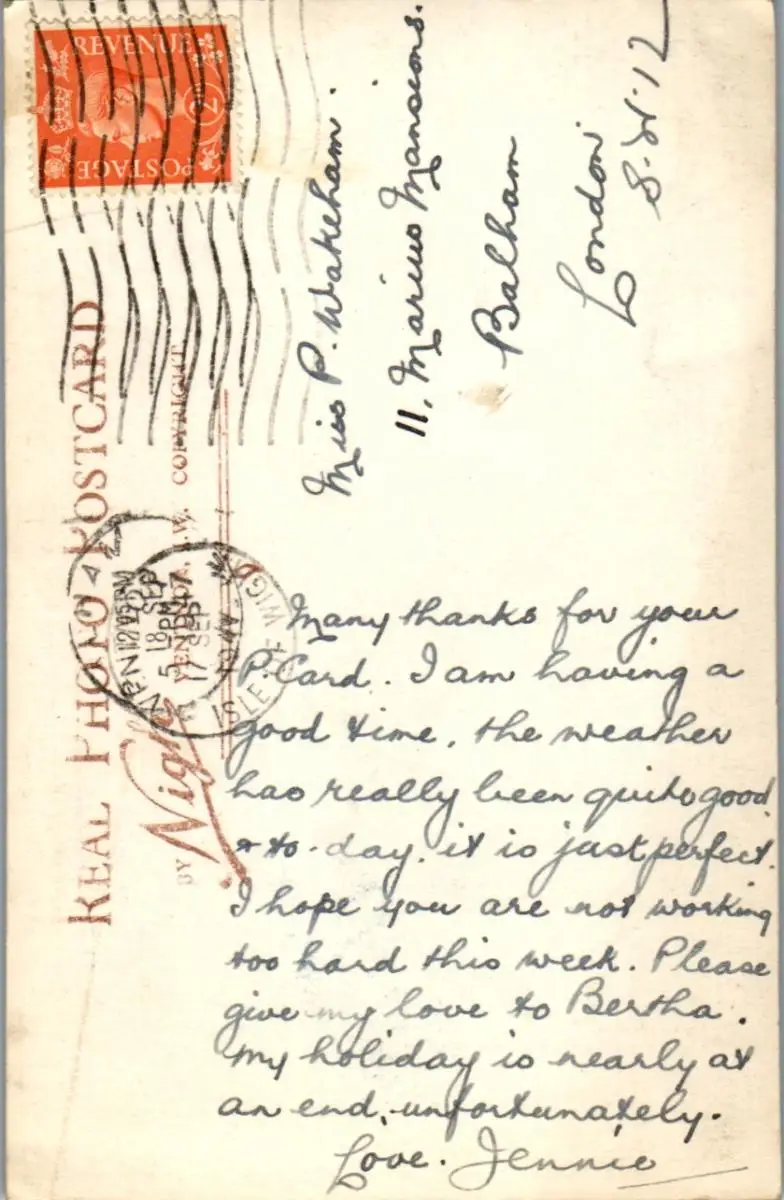 REVENUE
POSTAGE
2D
REAL PHOTO POSTCARD
BY Nigh
COPYRIGHT
VENTNOR
ISLE OF WIGHT
SEP
1947
Miss P. Wakeham.
11, Marius Mansions.
Balham
London
S.W.12
Many thanks for your
P. Card. I am having a
good time, the weather
has really been quite good
& to-day it is just perfect.
I hope you are not working
too hard this week. Please
give my love to Bertha.
My holiday is nearly at
an end, unfortunately.
Love. Jennie